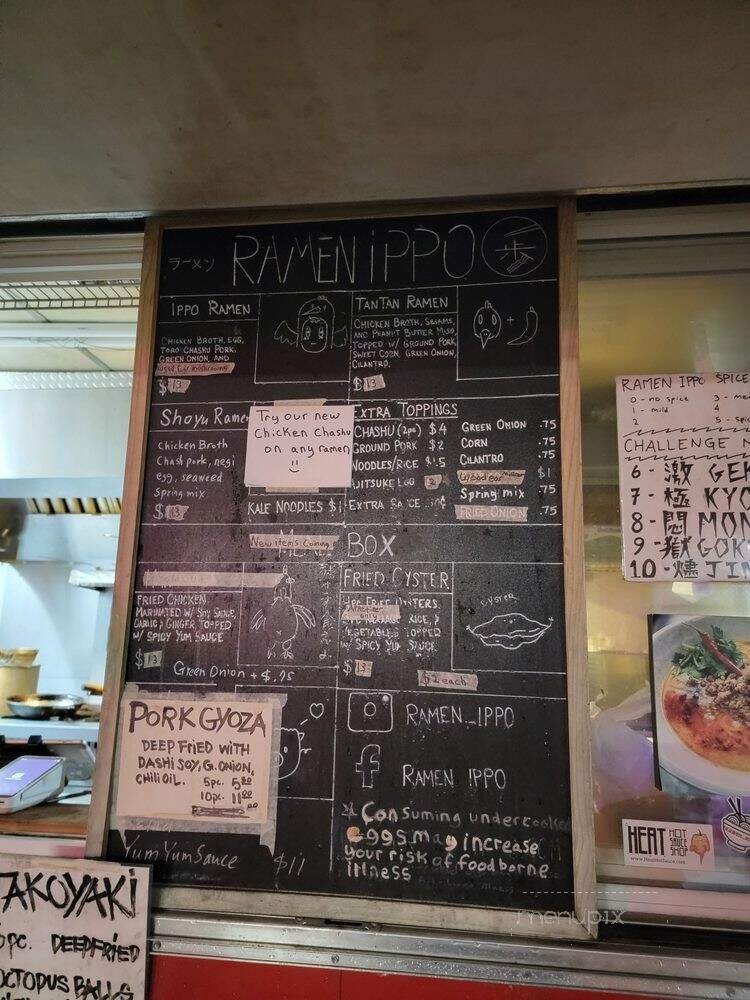 ラーメン RAMEN iPPO
IPPO RAMEN
CHICKEN BROTH, EGG,
TORO CHASHU PORK,
GREEN ONION, AND
$13
TANTAN RAMEN
CHICKEN BROTH, SESAME,
AND PEANUT BUTTER MISO,
TOPPED W/ GROUND PORK,
SWEET CORN, GREEN ONION,
CILANTRO.
$13
Shoyu Ramen
Chicken Broth
Chash pork, negi
egg, seaweed
Spring mix
$13
Try our new
Chicken Chashu
on any ramen
KALE NOODLES $1
EXTRA TOPPINGS
CHASHU (2pc) $4
GROUND PORK $2
NOODLES/RICE $1.5
AJITSUKE EGG 2
EXTRA SAUCE
GREEN ONION .75
CORN .75
CILANTRO .75
Wood ear $1
Spring mix .75
FRIED ONION .75
New items coming
BOX
FRIED CHICKEN
MARINATED W/ SOY SAUCE,
GARLIC & GINGER TOPPED
W/ SPICY YUM SAUCE
$13
Green Onion + $.75
FRIED OYSTER
RICE, &
VEGETABLES TOPPED
W/ SPICY YUM SAUCE
$13
$2 each
OYSTER
PORK GYOZA
DEEP FRiED WiTH
DASHI SOY, G.ONION,
CHILI OIL. 5pc. 5.00
10pc. 11.00
YumYumSauce $11
RAMEN_IPPO
RAMEN IPPO
Consuming undercooked
eggs may increase
your risk of foodborne
illness
RAMEN IPPO SPICE
0 - no spice
1 - mild
2
3 - me
4
5 - spic
CHALLENGE
6 - 激 GEK
7 - 極 KYO
8 - 悶 MON
9 - 獄 GOK
10 - JIN
HEAT HOT SAUCE SHOP
TAKOYAKI
pc. DEEPFRIED
OCTOPUS BALLS
menupix